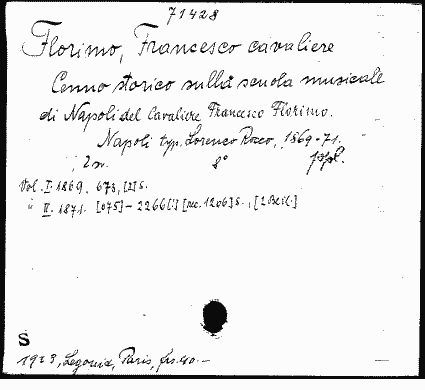 71428
Florimo, Francesco cavaliere
Cenno storico sulla scuola musicale
di Napoli del Cavaliere Francesco Florimo.
Napoli typ. Lorenzo Rocco, 1869-71.
2 v. 8°
Vol. I. 1869. 673, [2] S.
" II. 1871. [675] - 2266 [!] [rec. 1206] S., [2 Beil.]
S
1923, Legouix, Paris, frs. 40.-